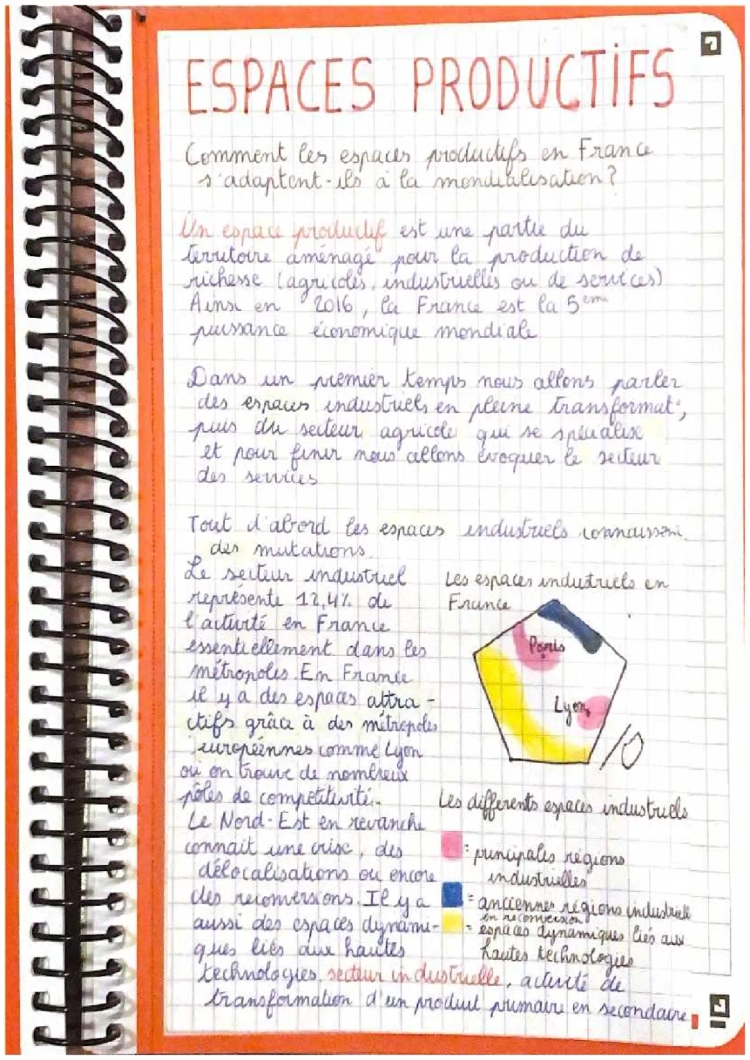 ESPACES PRODUCTIFS
Comment les espaces productifs en France
s'adaptent-ils à la mondialisation ?
Un espace productif est une partie du
territoire aménagé pour la production de
richesse (agricoles, industrielles ou de services)
Ainsi en 2016, la France est la 5eme
puissance économique mondiale
Dans un premier temps nous allons parler
des espaces industriels en pleine transformat°,
puis du secteur agricole qui se spécialise
et pour finir nous allons évoquer le secteur
des services
Tout d'abord les espaces industriels connaissent
des mutations.
Le secteur industriel
représente 12,4% de
l'activité en France
essentiellement dans les
métropoles. En France
il y a des espaces attra-
ctifs grâce à des métropoles
européennes comme Lyon
où on trouve de nombreux
pôles de compétitivité.
Le Nord-Est en revanche
connait une crise, des
délocalisations ou encore
des reconversions. Il y a
aussi des espaces dynami-
ques liés aux hautes
technologies. secteur industrielle, activité de
transformation d'un produit primaire en secondaire
Les espaces industriels en
France
Paris
Lyon
Les différents espaces industriels
: principales régions
industrielles
= anciennes régions industriell
en reconversion
= espaces dynamiques liés aux
hautes technologies